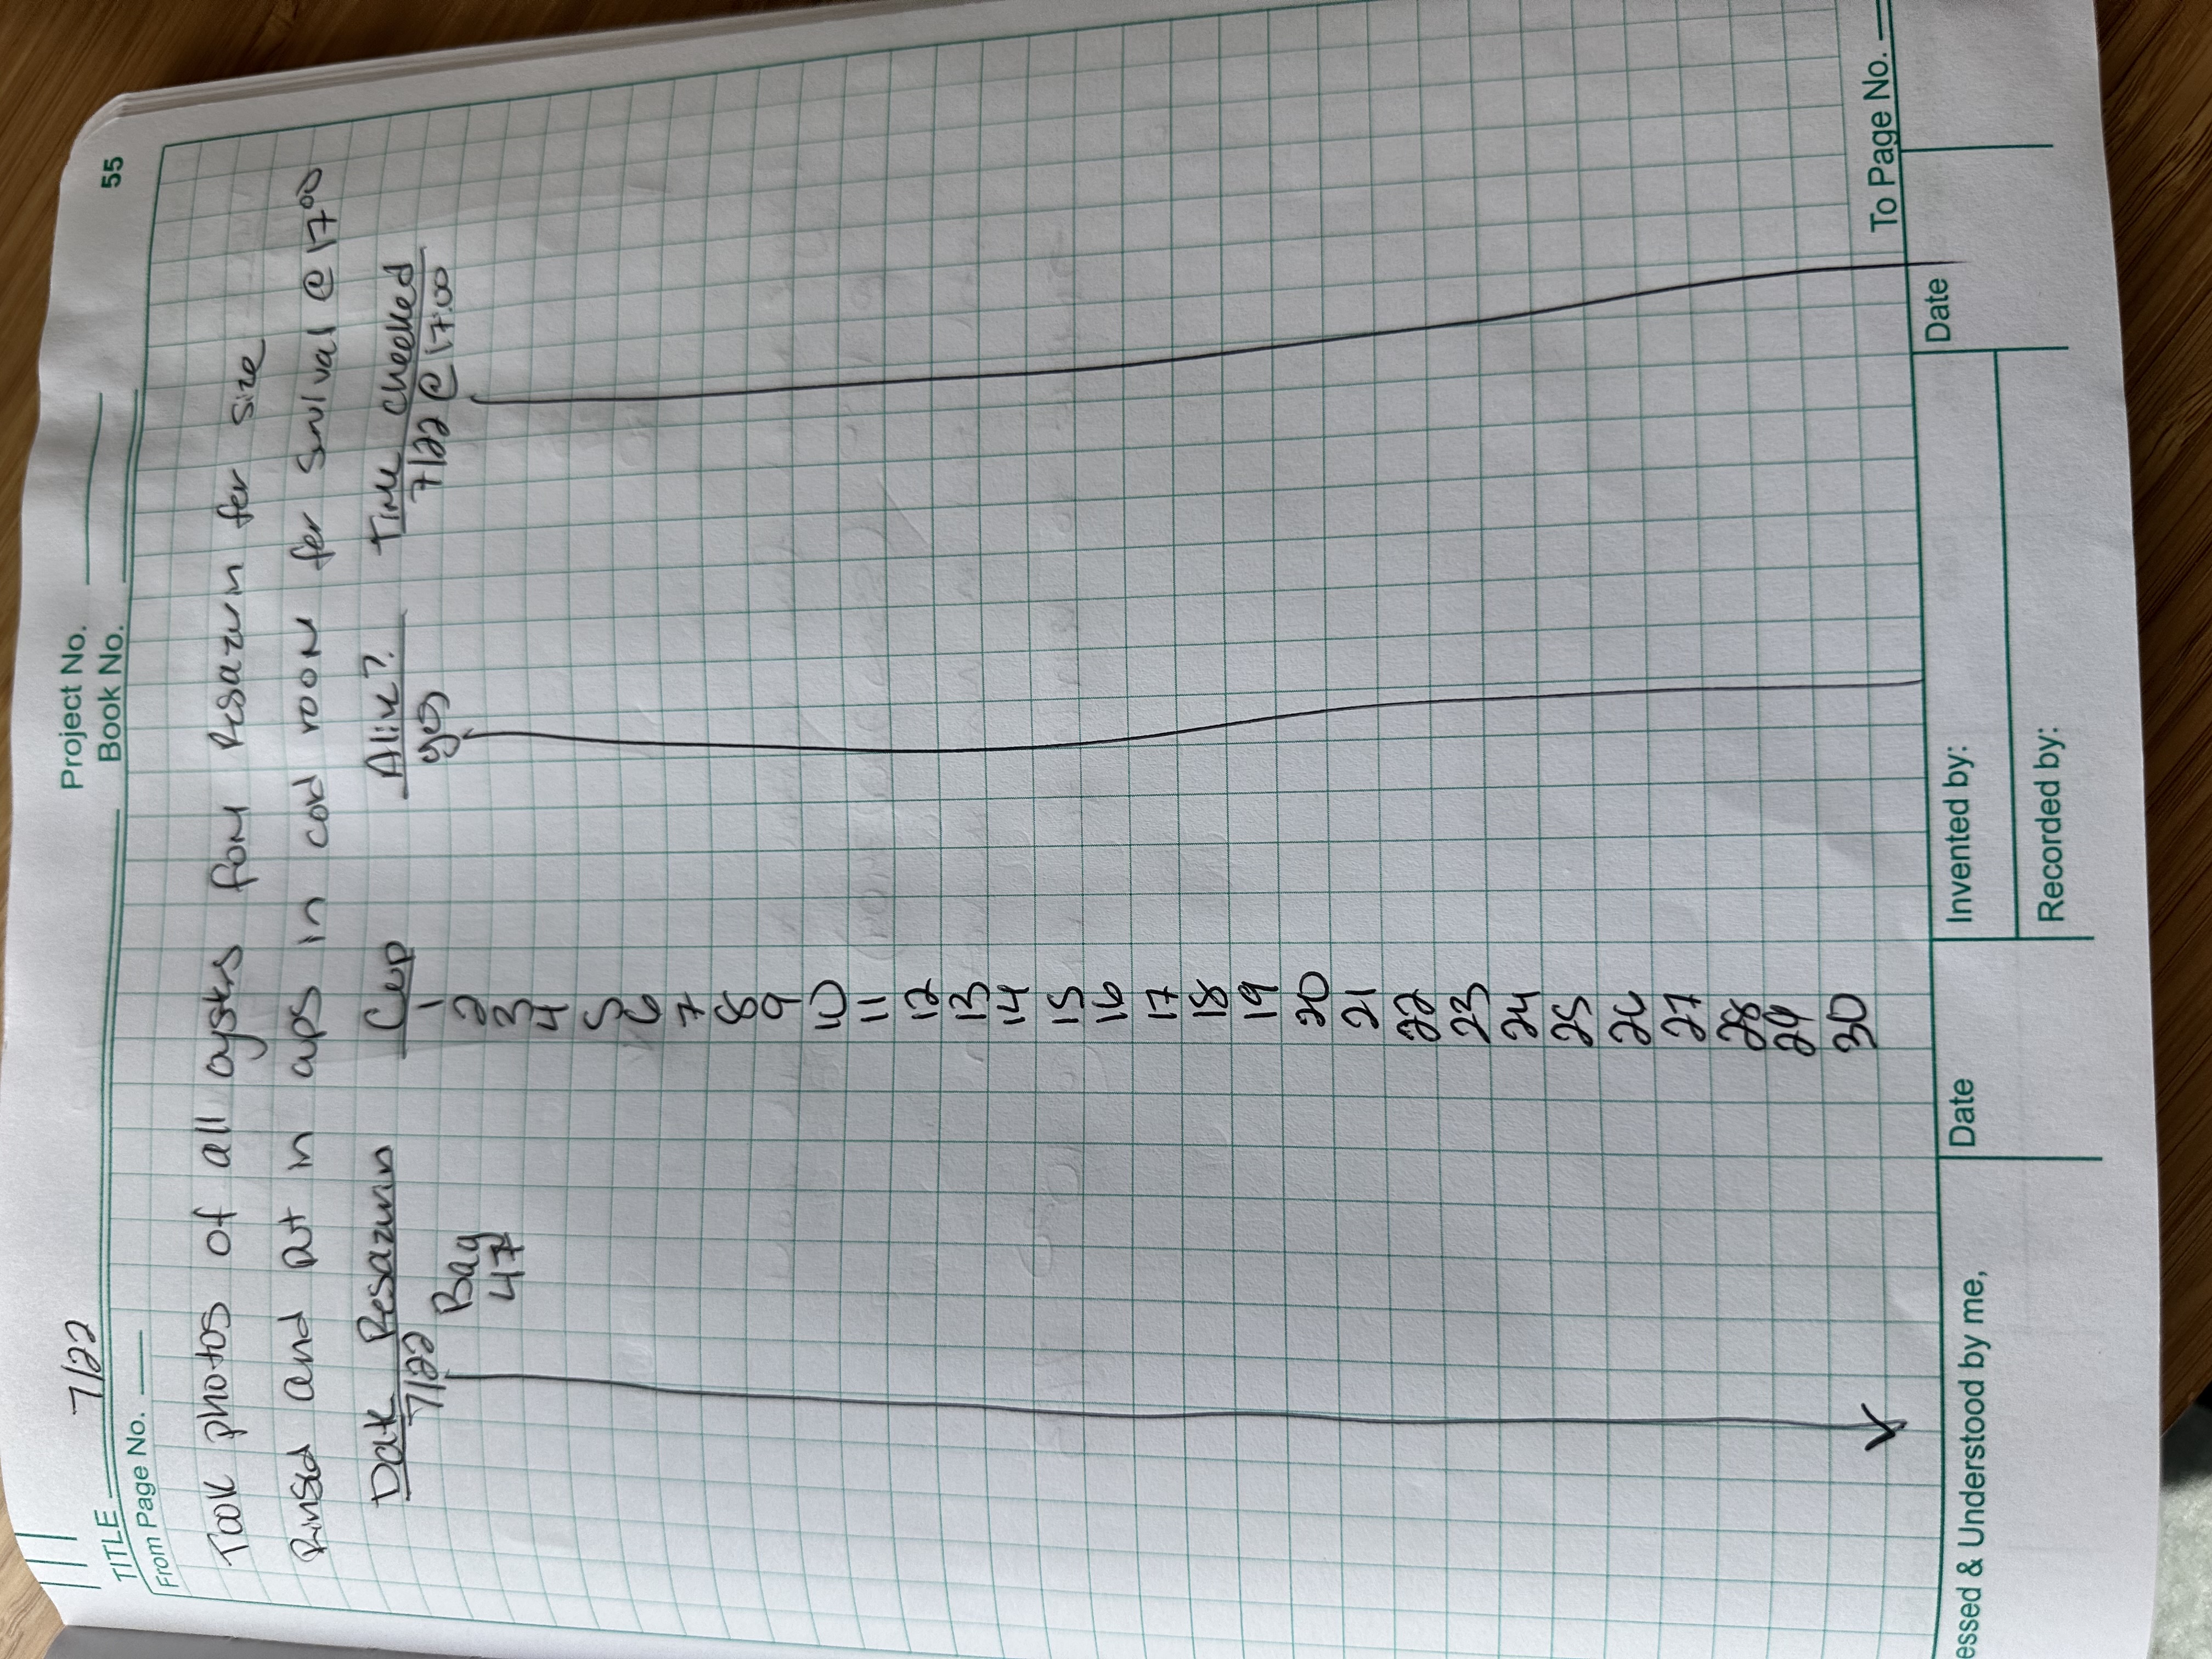 7/22
TITLE
Project No.
Book No.
55
From Page No.
Took photos of all oysters from Resazurin for size
Rinsed and put in cups in cold room for survival @ 17⁰⁰
Date Resazurin Cup Alive? Time checked
7/22 1 yes 7/22 @ 17:00
Bag 2
47 3
4
5
6
7
8
9
10
11
12
13
14
15
16
17
18
19
20
21
22
23
24
25
26
27
28
29
30
To Page No.
essed & Understood by me,
Date
Invented by:
Date
Recorded by: